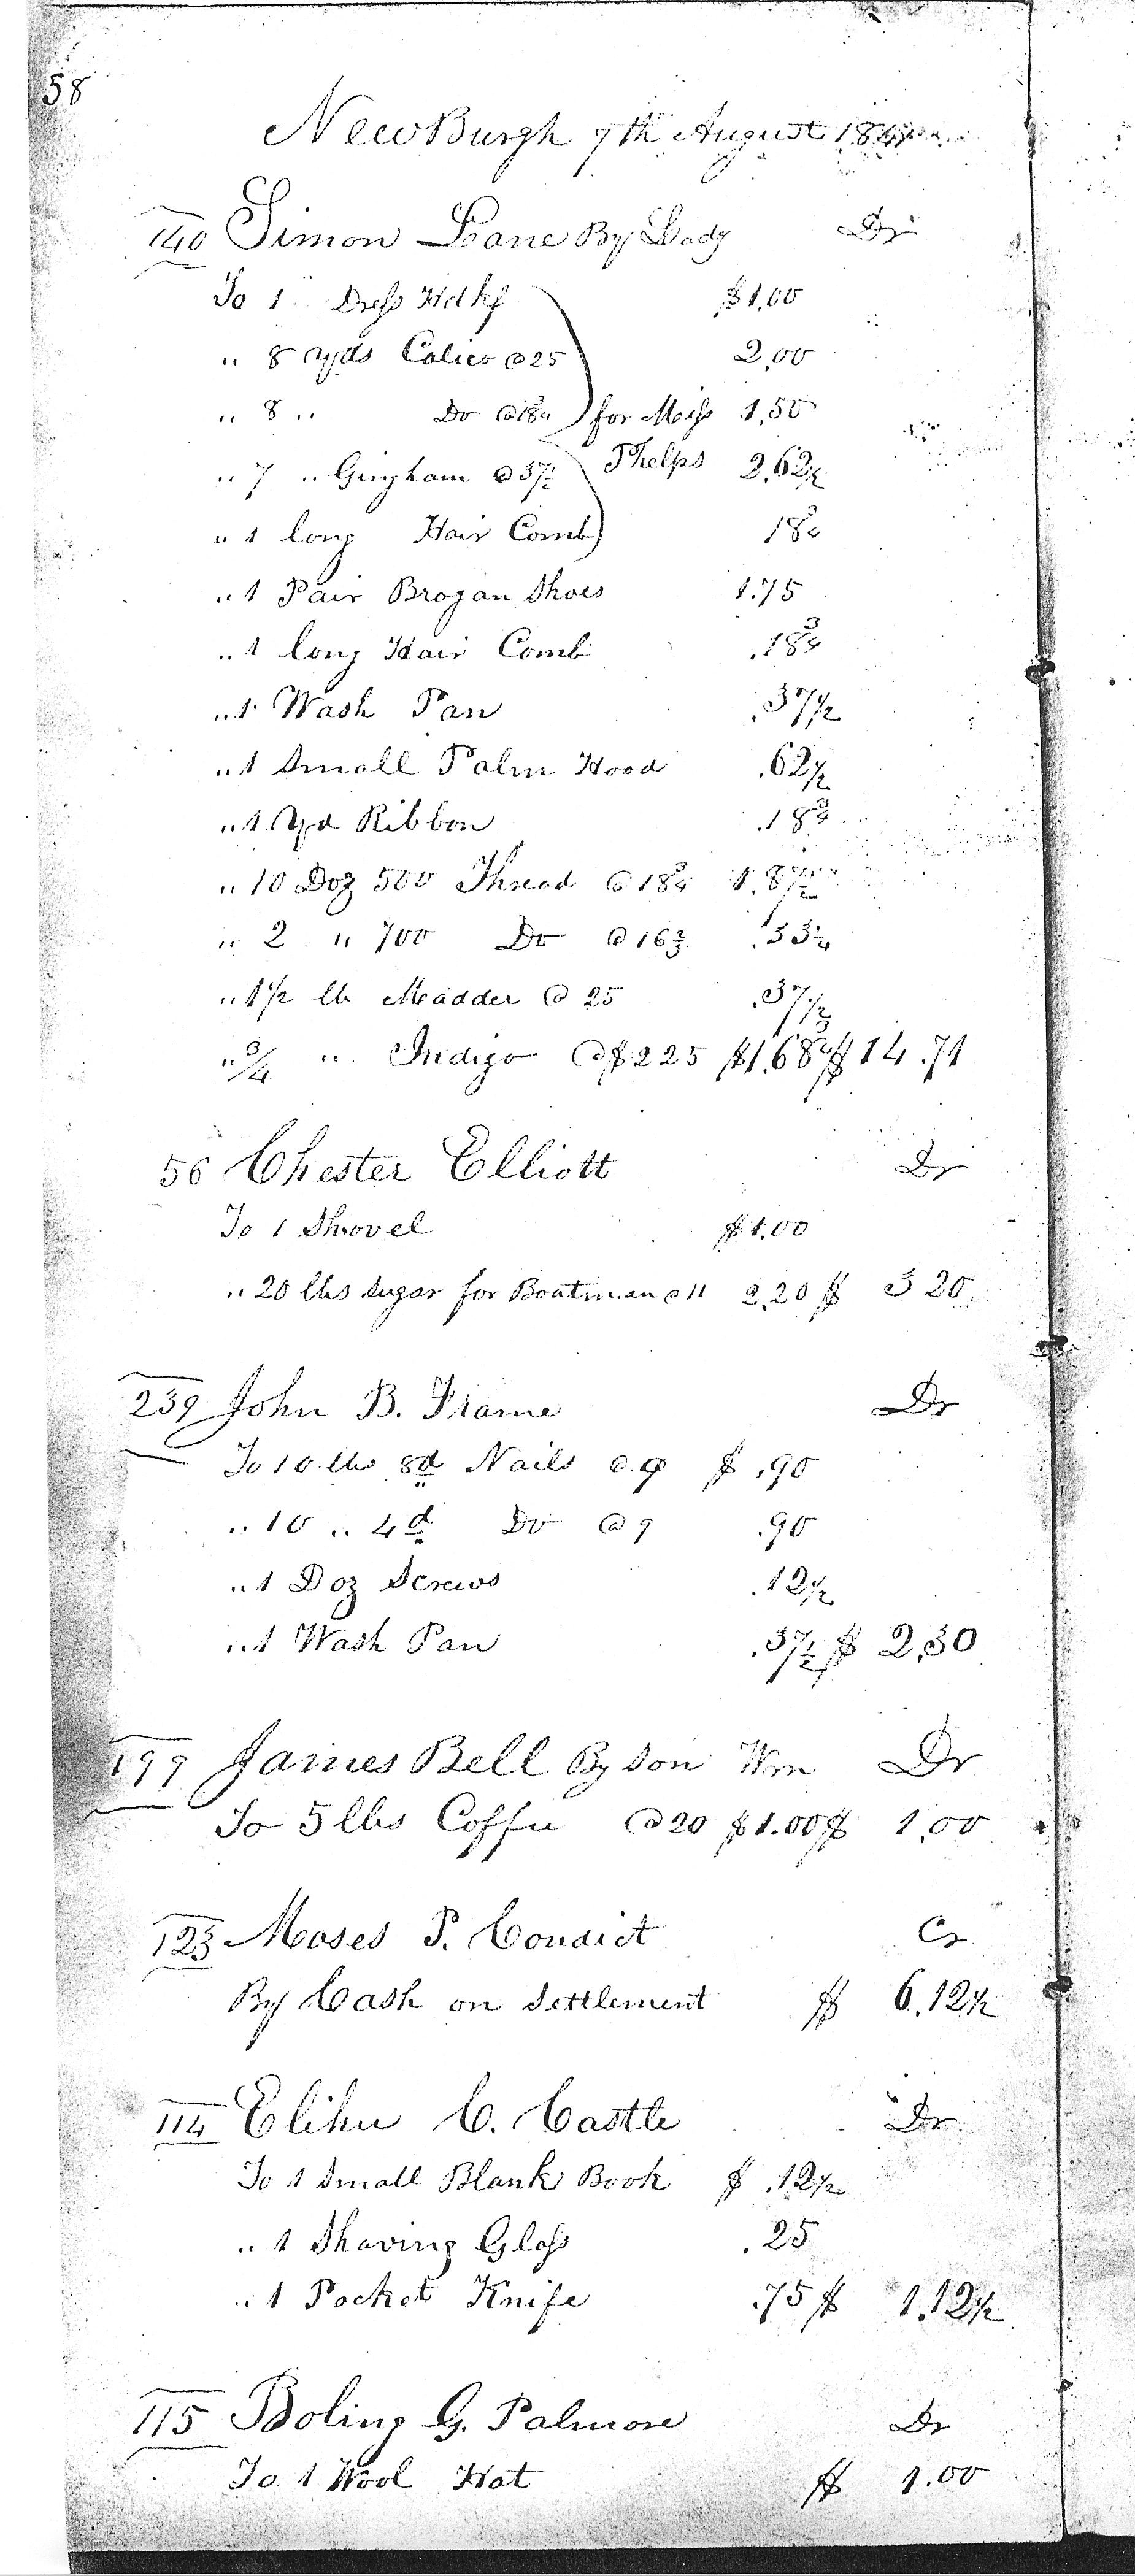 58
NewBurgh 7th August 1841
140 Simon Lane By Lady Dr
To 1 Dress Hdkf $1.00
" 8 yds Calico @ 25 2,00
" 8 " Do @ 18¾ for Miss 1,50
" 7 " Gingham @ 37½ Phelps 2,62½
" 1 long Hair Comb 18¾
" 1 Pair Brogan Shoes 1.75
" 1 long Hair Comb .18¾
" 1 Wash Pan .37½
" 1 Small Palm Hood .62½
" 1 Yd Ribbon .18¾
" 10 Doz 500 Thread @ 18¾ 1.87½
" 2 " 700 Do @ 16⅔ .33¼
" 1½ lb Madder @ 25 .37½
" ¾ " Indigo @ $2 25 $1.68¾ $14.71
56 Chester Elliott Dr
To 1 Shovel $1.00
" 20 lbs Sugar for Boatman @ 11 2.20 $ 3 20
239 John B. Frame Dr
To 10 lbs 8d Nails @ 9 $ .90
" 10 " 4d Do @ 9 .90
" 1 Doz Screws .12½
" 1 Wash Pan .37½ $ 2,30
199 James Bell By Son Wm Dr
To 5 lbs Coffee @ 20 $1.00 $ 1.00
123 Moses P. Condict Cr
By Cash on Settlement $ 6.12½
114 Elihu C. Castle Dr
To 1 Small Blank Book $ .12½
" 1 Shaving Glass .25
" 1 Pocket Knife .75 $ 1.12½
115 Boling G. Palmore Dr
To 1 Wool Hat $ 1.00